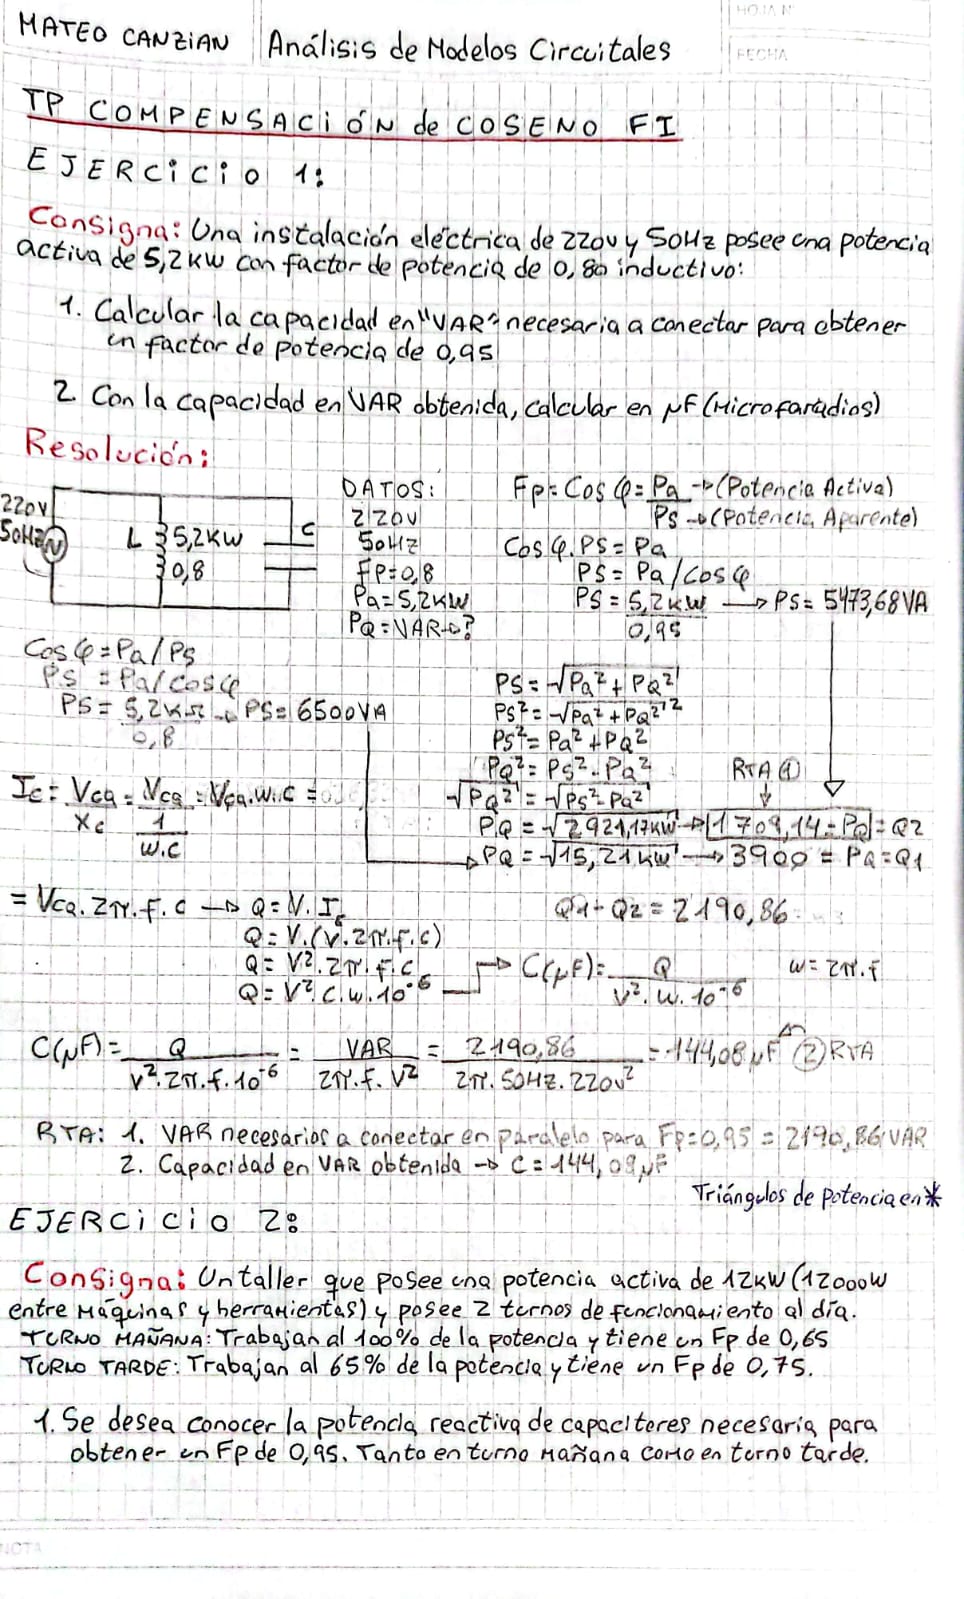 HOJA Nº
MATEO CANZIAN
Análisis de Modelos Circuitales
FECHA
TP COMPENSACIÓN de COSENO FI
EJERCICIO 1:
Consigna: Una instalación eléctrica de 220V y 50Hz posee una potencia
activa de 5,2KW con factor de potencia de 0,80 inductivo:
1. Calcular la capacidad en "VAR" necesaria a conectar para obtener
un factor de potencia de 0,95
2. Con la capacidad en VAR obtenida, calcular en μF (Microfaradios)
Resolución:
220V
50Hz
N
L
5,2KW
0,8
C
DATOS:
220V
50Hz
FP=0,8
Pa=5,2KW
PQ=VAR→?
Fp=Cos φ=Pa→(Potencia Activa)
PS→(Potencia Aparente)
Cos φ.PS=Pa
PS=Pa/Cos φ
PS=5,2KW → PS=5473,68VA
0,95
Cos φ=Pa/PS
PS=Pa/cos φ
PS=5,2KW→PS=6500VA
0,8
PS=√Pa²+PQ²
PS²=√Pa²+PQ²²
PS²=Pa²+PQ²
PQ²=PS²-Pa²
√PQ²=√PS²-Pa²
RTA ①
PQ=√2921,17KW→1709,14=PQ=Q2
PQ=√15,21KW→3900=PQ=Q1
Ic=Vca=Vca=Vca.w.c=
Xc 1
w.c
=Vca.2π.f.c → Q=V.Ic
Q=V.(V.2π.f.c)
Q=V².2π.f.c
Q=V².C.w.10⁻⁶
Q1-Q2=2190,86
C(μF)=Q
V².w.10⁻⁶
w=2π.f
C(μF)=Q = VAR = 2190,86 =144,08μF ② RTA
V².2π.f.10⁻⁶ 2π.f.V² 2π.50Hz.220V²
RTA: 1. VAR necesarios a conectar en paralelo para Fp=0,95=2190,86VAR
2. Capacidad en VAR obtenida → C=144,08μF
Triángulos de potencia en *
EJERCICIO 2:
Consigna: Un taller que posee una potencia activa de 12KW (12000W
entre Máquinas y herramientas) y posee 2 turnos de funcionamiento al día.
TURNO MAÑANA: Trabajan al 100% de la potencia y tiene un Fp de 0,65
TURNO TARDE: Trabajan al 65% de la potencia y tiene un Fp de 0,75.
1. Se desea conocer la potencia reactiva de capacitores necesaria para
obtener un Fp de 0,95. Tanto en turno Mañana como en turno tarde.
NOTA